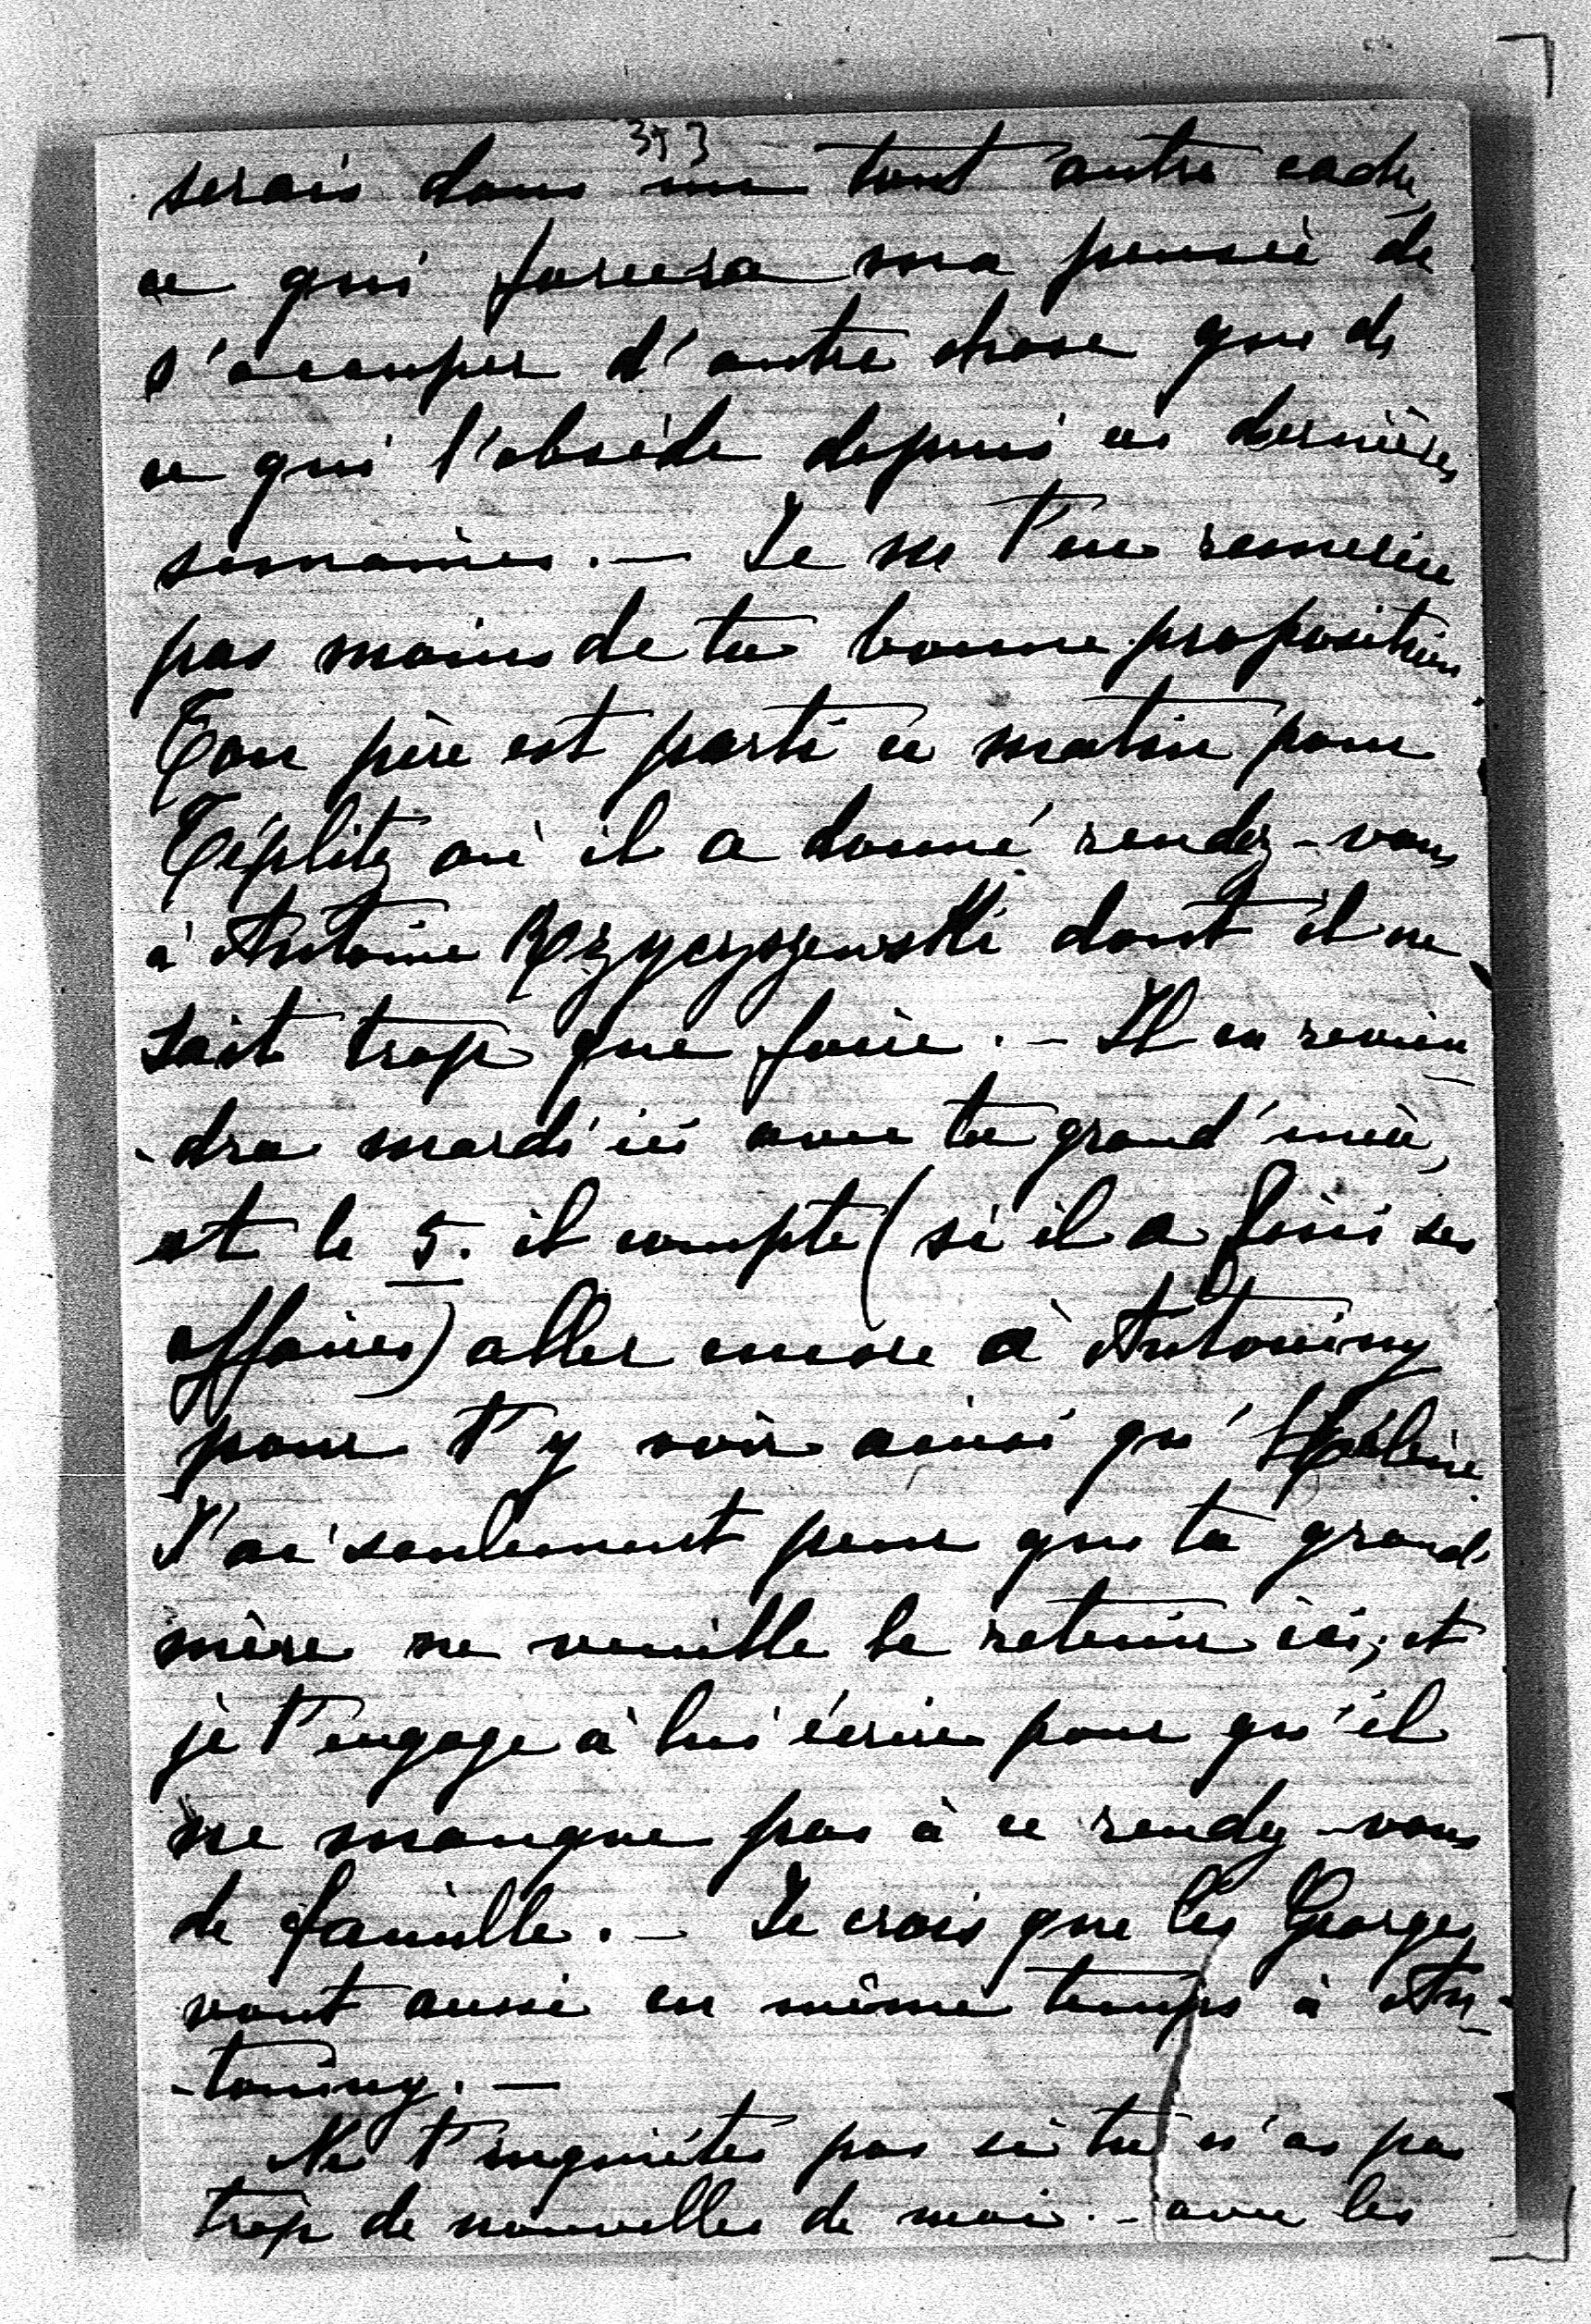 373
serais dans un tout autre cadre,
ce qui forcera ma pensée de
s'occuper d'autre chose que de
ce qui l'obsède depuis ces dernières
semaines. — Je ne t'en remercie
pas moins de ta bonne proposition.
Ton père est parti ce matin pour
Téplitz où il a donné rendez-vous
à Antoine dont il ne
sait trop que faire. — Il en revien-
-dra mardi ici avec ta grand'mère,
et le 5. il compte (si il a fini ses
affaires) aller encore à Antoniny
pour t'y voir ainsi qu'Hélène.
J'ai seulement peur que ta grand'
mère ne veuille le retenir ici; et
je t'engage à lui écrire pour qu'il
ne manque pas à ce rendez-vous
de famille. — Je crois que les Georges
vont aussi en même temps à An-
-toniny. —
Ne t'inquiètes pas si tu n'as pas
trop de nouvelles de moi. — avec les